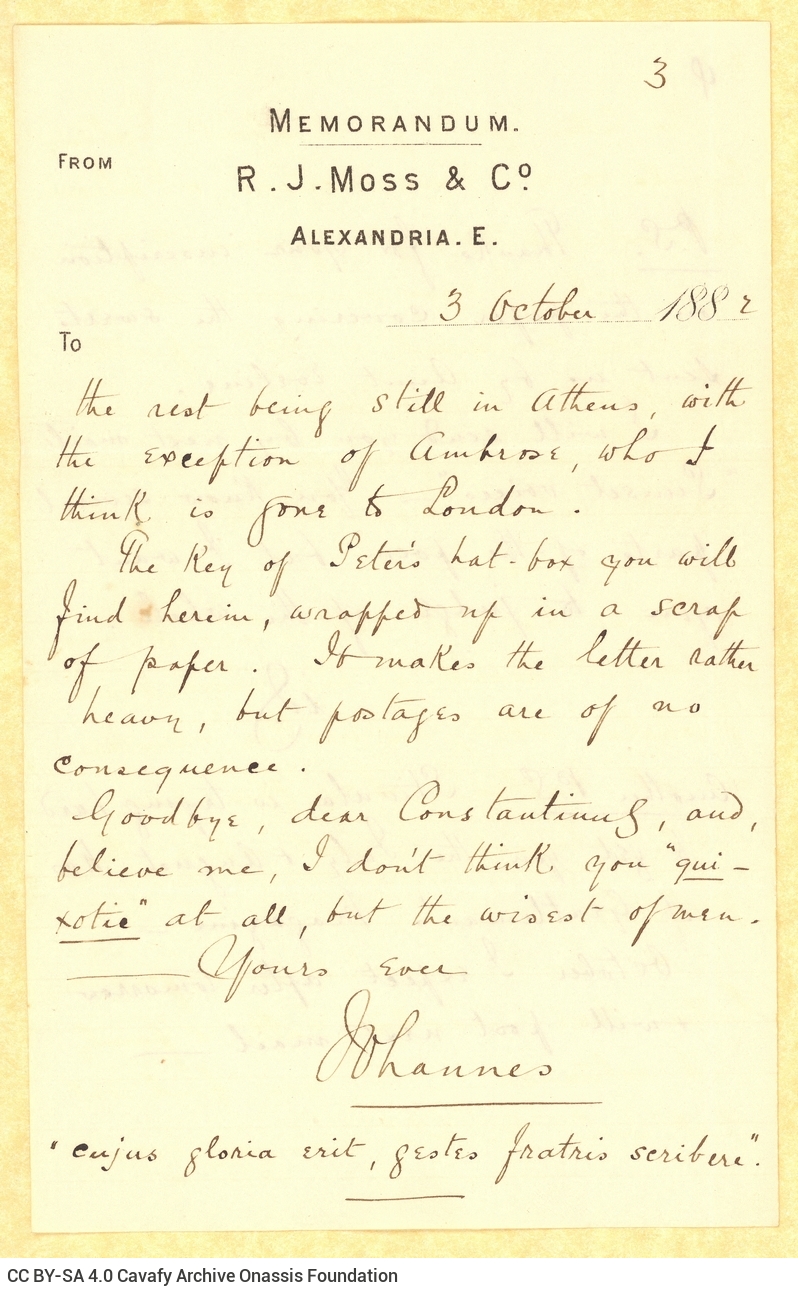 3
MEMORANDUM.
FROM
R. J. MOSS & Cº
ALEXANDRIA. E.
3 October 1882
To
the rest being still in Athens, with
the exception of Ambrose, who I
think is gone to London.
The Key of Peter's hat-box you will
find herein, wrapped up in a scrap
of paper. It makes the letter rather
heavy, but postages are of no
consequence.
Goodbye, dear Constantinus, and,
believe me, I don't think you "qui-
xotic" at all, but the wisest of men.
Yours ever
Johannes
"cujus gloria erit, gestes fratris scribere".
CC BY-SA 4.0 Cavafy Archive Onassis Foundation